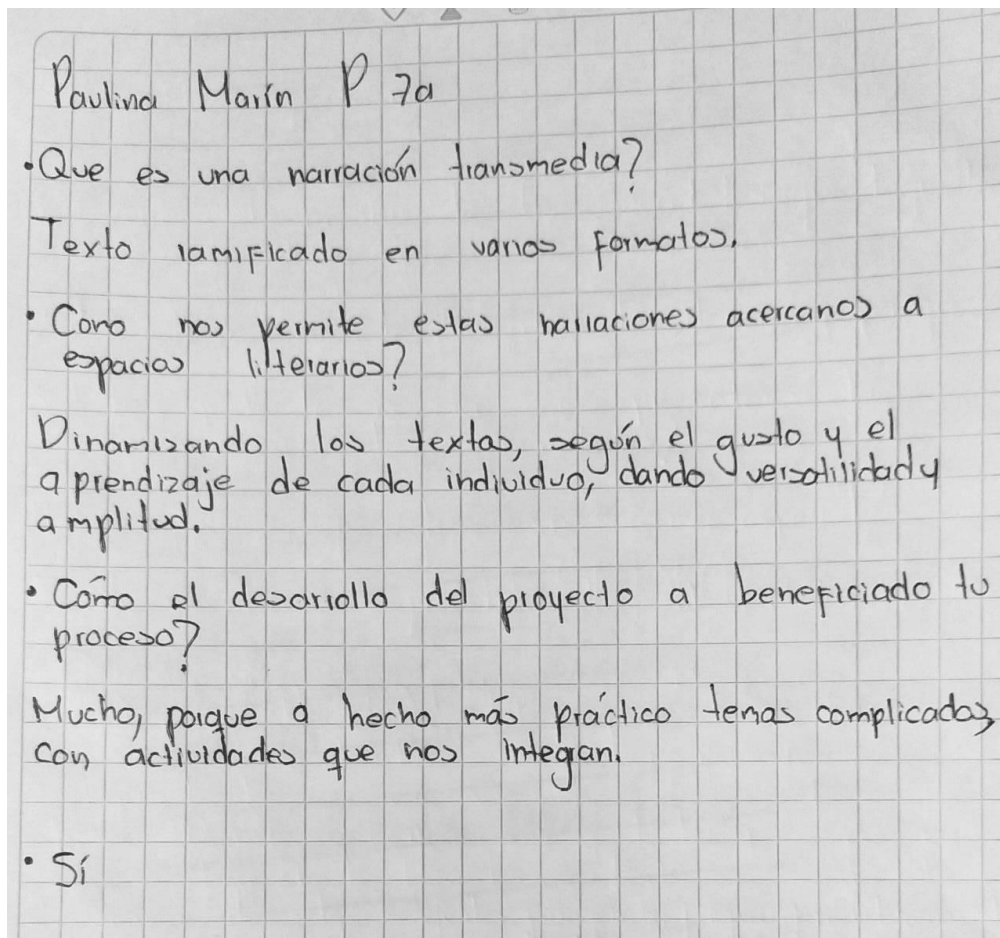 Paulina Marín P 7a
• Que es una narración transmedia?
Texto ramificado en varios formatos.
• Como nos permite estas narraciones acercanos a
espacios literarios?
Dinamizando los textos, según el gusto y el
aprendizaje de cada individuo, dando versatilidad y
amplitud.
• Cómo el desarrollo del proyecto a beneficiado tu
proceso?
Mucho, porque a hecho más práctico temas complicados,
con actividades que nos integran.
• Sí